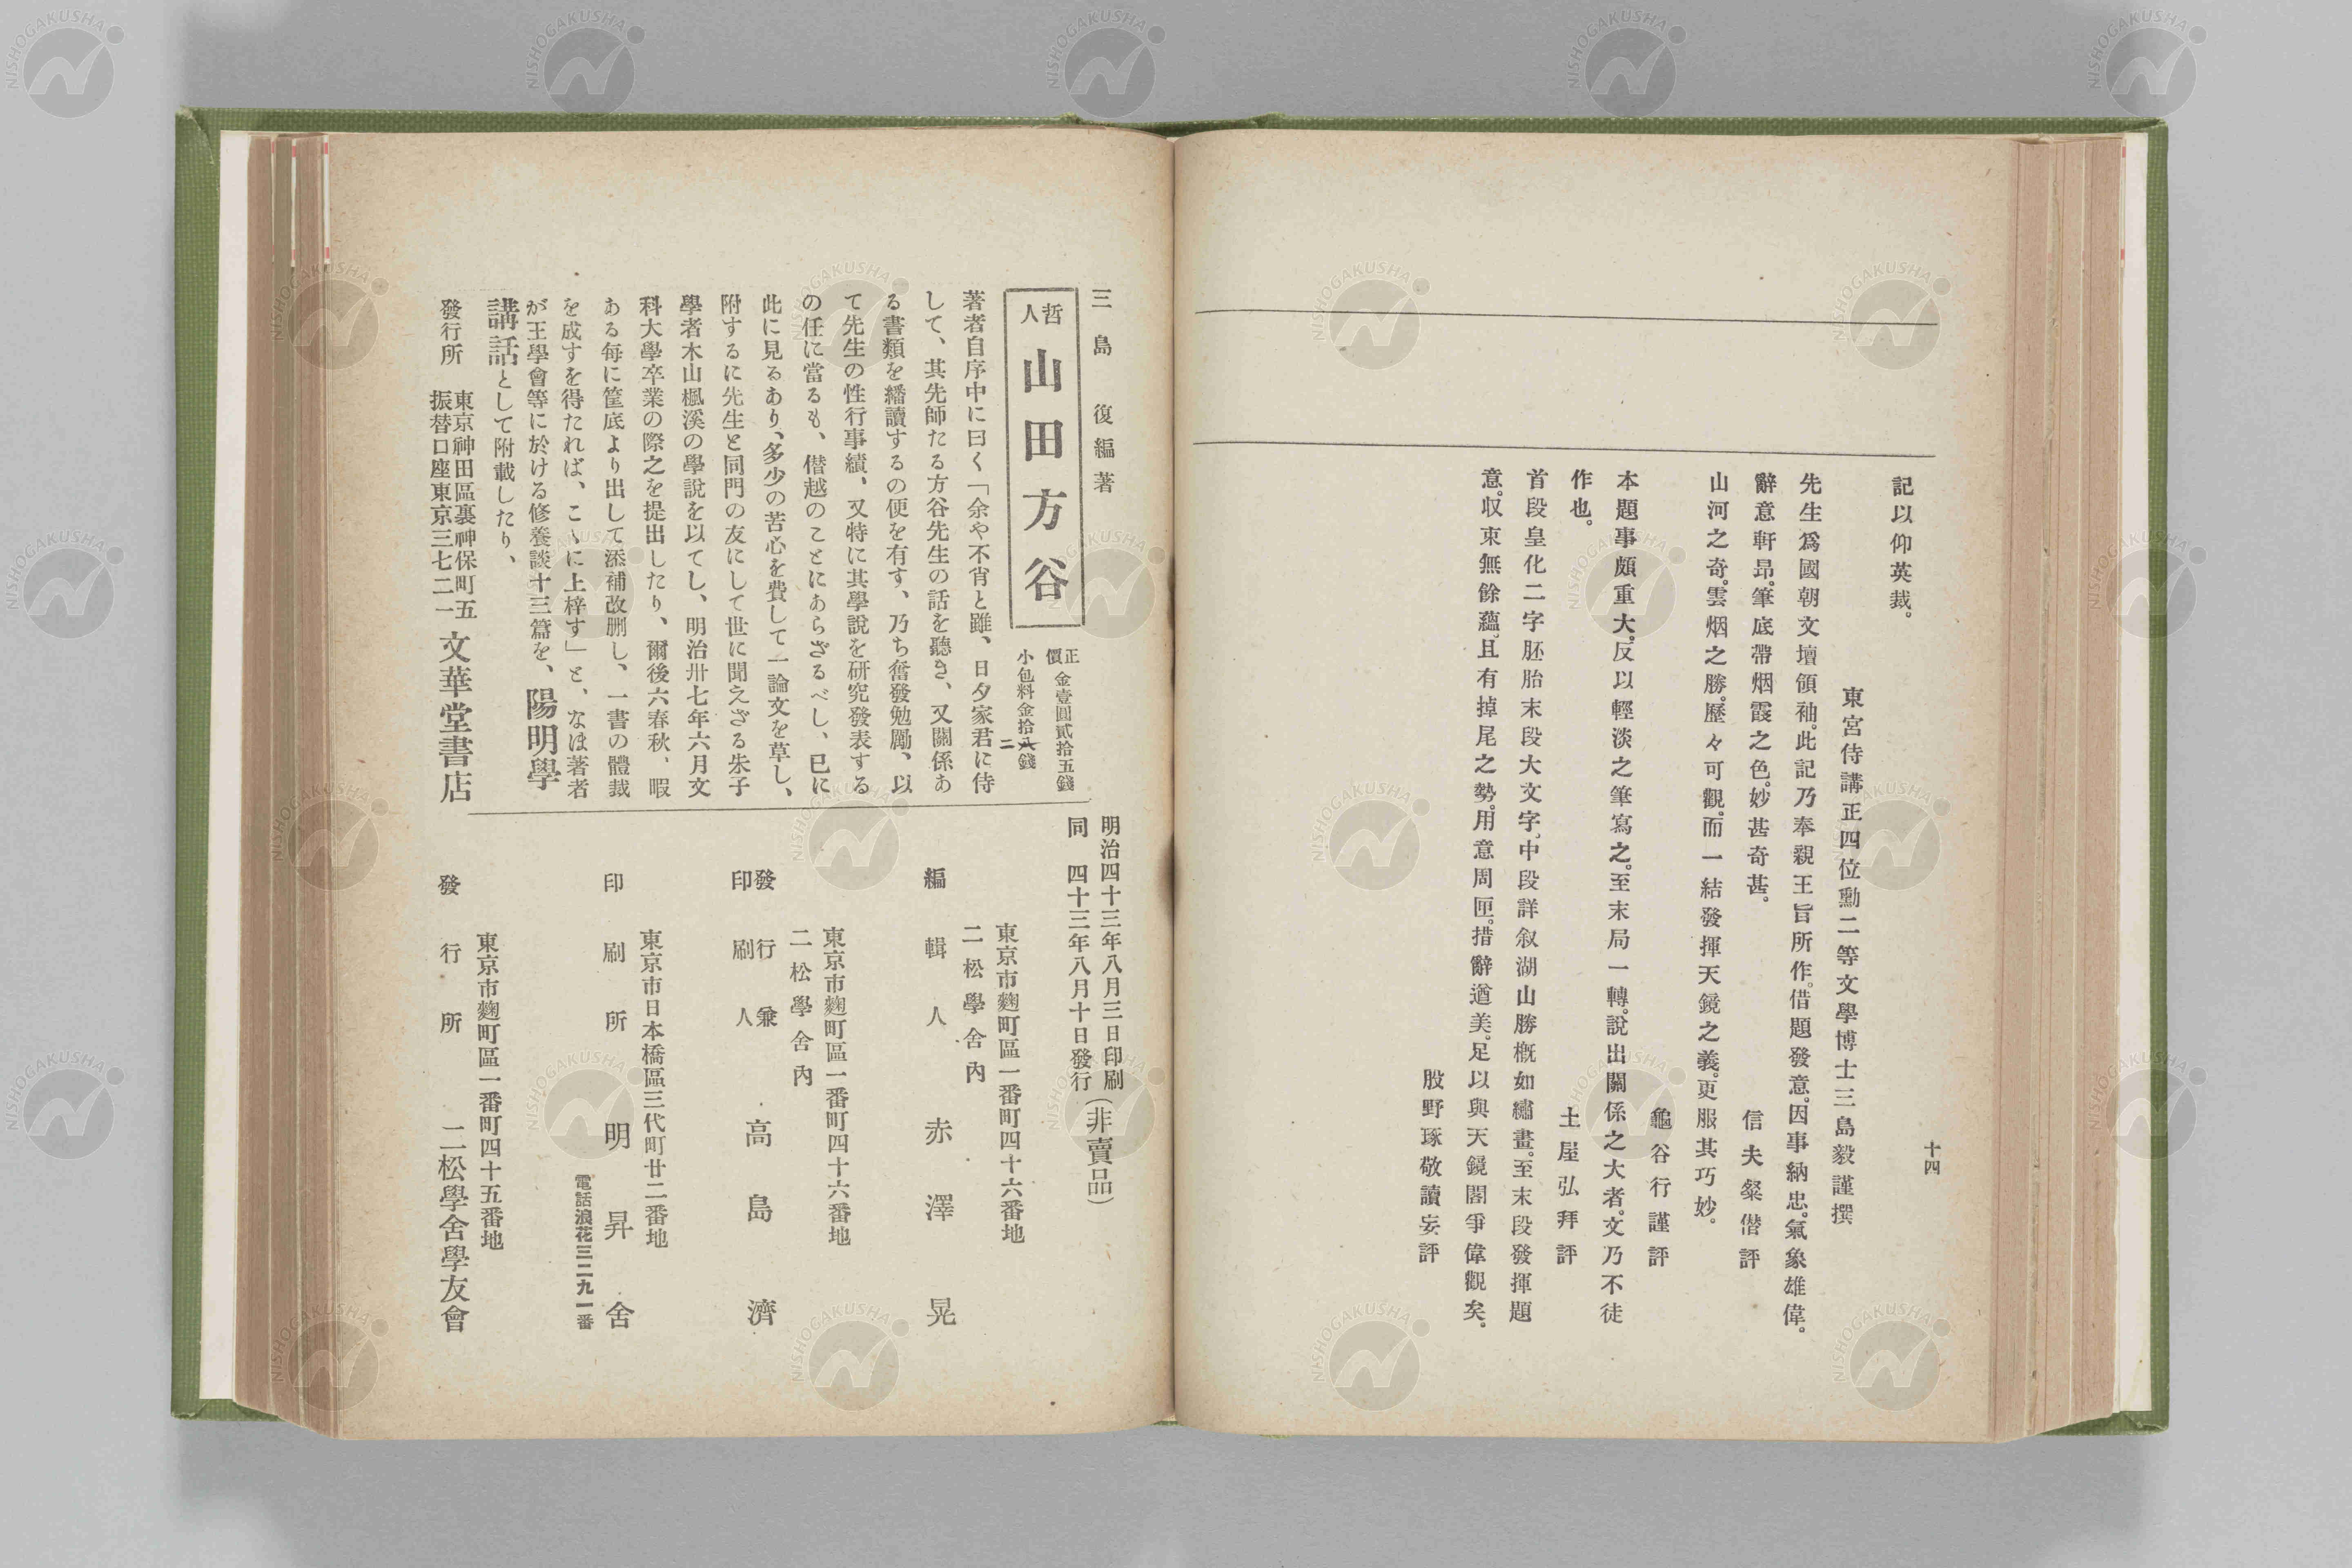 十四
記以仰英裁。
東宮侍講正四位勳二等文學博士三島毅謹撰
先生爲國朝文壇領袖。此記乃奉親王旨所作。借題發意。因事納忠。氣象雄偉。
辭意軒昂。筆底帶烟霞之色。妙甚奇甚。
信夫粲僭評
山河之奇。雲烟之勝。歷々可觀。而一結發揮天鏡之義。更服其巧妙。
龜谷行謹評
本題事頗重大。反以輕淡之筆寫之。至末局一轉。說出關係之大者。文乃不徒
作也。
土屋弘拜評
首段皇化二字胚胎末段大文字、中段詳叙湖山勝概如繡畫。至末段發揮題
意。収束無餘蘊、且有掉尾之勢。用意周匝。措辭遒美。足以與天鏡閣爭偉觀矣。
股野琢敬讀妄評
三島復編著
哲人 山田方谷
正價 金壹圓貳拾五錢
小包料金拾八錢
二
著者自序中に曰く「余や不肖と雖、日夕家君に侍
して、其先師たる方谷先生の話を聽き、又關係あ
る書類を繙讀するの便を有す、乃ち奮發勉勵、以
て先生の性行事績、又特に其學說を研究發表する
の任に當るも、僭越のことにあらざるべし、已に
此に見るあり、多少の苦心を費して一論文を草し、
附するに先生と同門の友にして世に聞えざる朱子
學者木山楓溪の學說を以てし、明治卅七年六月文
科大學卒業の際之を提出したり、爾後六春秋、暇
ある每に筐底より出して添補改刪し、一書の體裁
を成すを得たれば、こゝに上梓す」と、なほ著者
が王學會等に於ける修養談十三篇を、陽明學
講話として附載したり、
發行所
東京神田區裏神保町五
振替口座東京三七二一
文華堂書店
明治四十三年八月三日印刷
同 四十三年八月十日發行
(非賣品)
東京市麴町區一番町四十六番地
二松學舍內
編輯人 赤澤晃
東京市麴町區一番町四十六番地
二松學舍內
發行兼
印刷人 高島濟
東京市日本橋區三代町廿二番地
印刷所 明昇舍
電話浪花三二九一番
東京市麴町區一番町四十五番地
發行所 二松學舍學友會
NISHOGAKUSHA